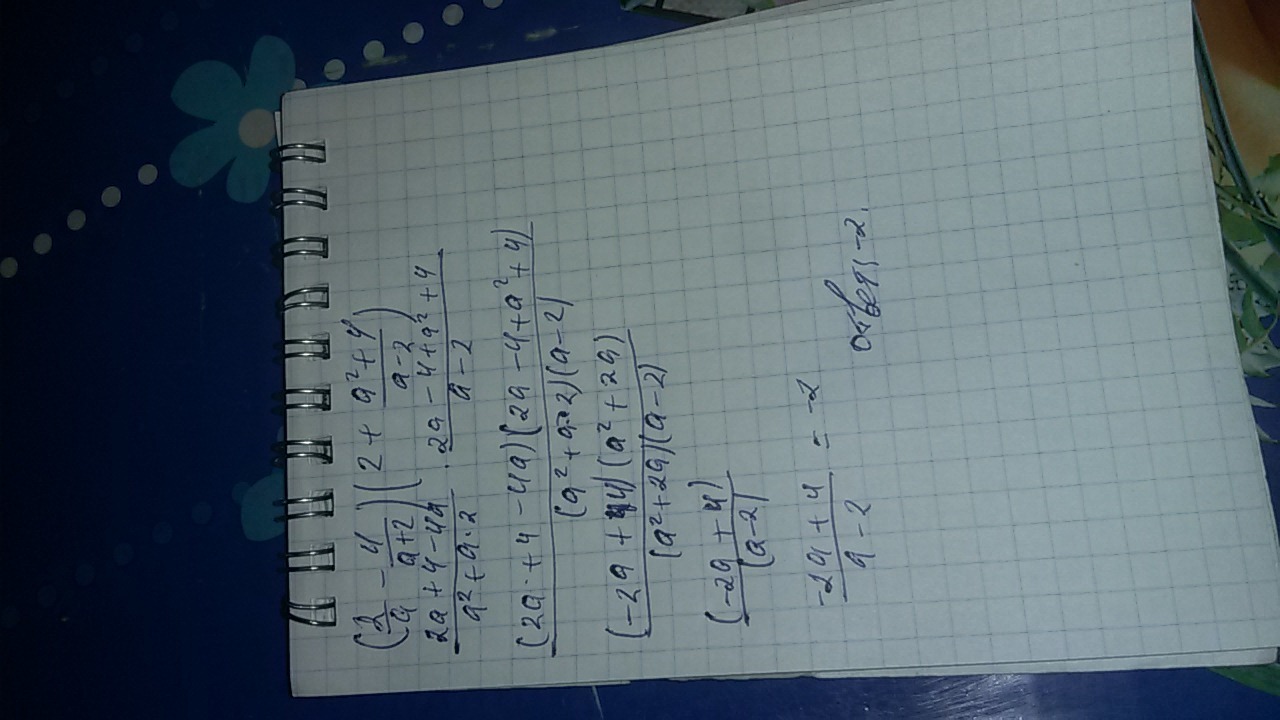 (2/a − 4/(a+2))(2 + (a²+4)/(a−2))
(2a+4−4a)/(a²+a·2) · (2a−4+a²+4)/(a−2)
((2a+4−4a)(2a−4+a²+4))/((a²+a·2)(a−2))
((−2a+4)(a²+2a))/((a²+2a)(a−2))
(−2a+4)/(a−2)
(−2a+4)/(a−2) = −2
ответ; −2.